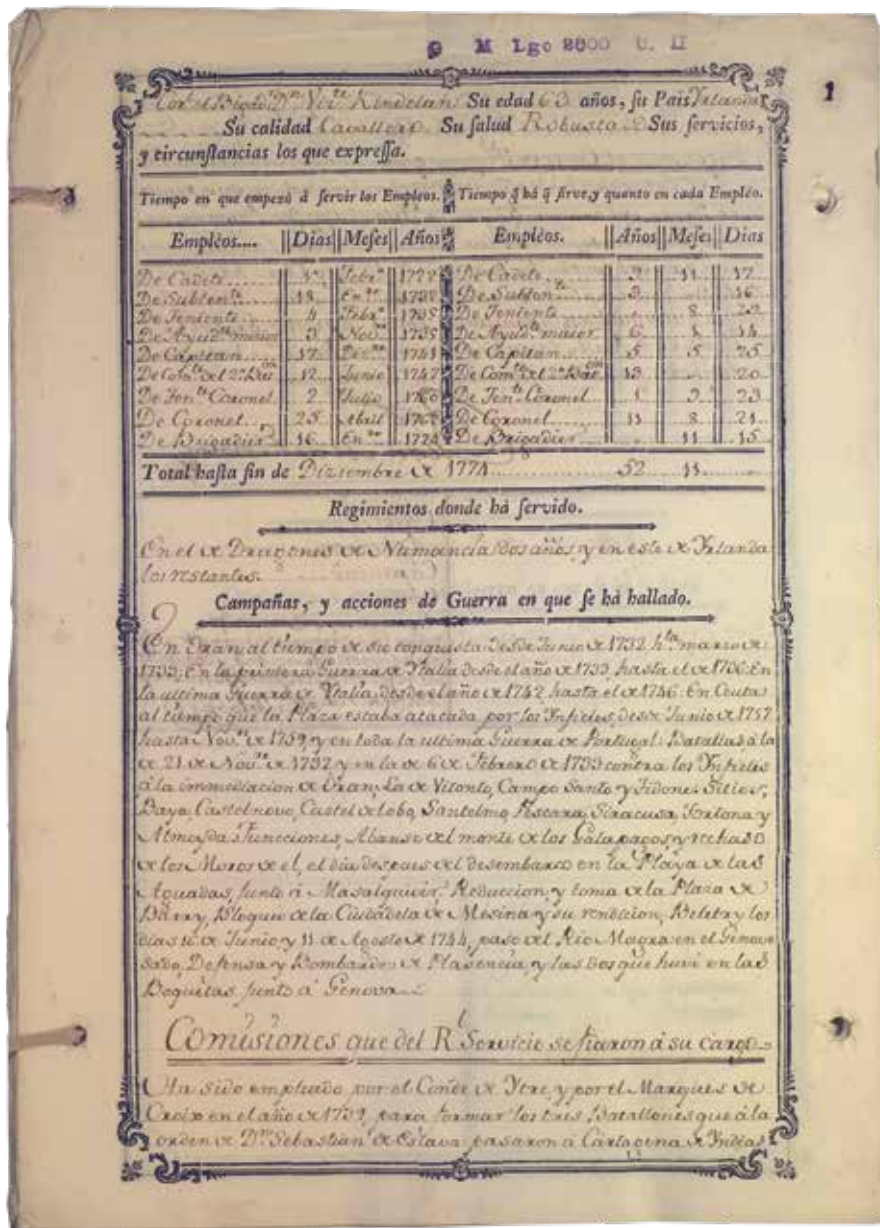 G M Lgo 2600 C. II
1
Corl. el Brigr. Dn. Vizte. Kindelan Su edad 63 años, su Pais Yrlanda
Su calidad Cavallero Su salud Robusta Sus servicios,
y circunstancias los que expressa.
Tiempo en que empezó á servir los Empleos. Tiempo q̃ há q̃ sirve, y quanto en cada Empléo.
Empléos.... Dias Meses Años Empléos. Años Meses Dias
De Cadete Febo. 1722 De Cadete 11 17
De Subtente. En.ro De Subtente. 16
De Teniente 4 Febo. 1735 De Teniente 8
De Ayudte. maior 3 Nove. 1735 De Ayudte. maior 6 1 14
De Capitan 17 Dize. 1741 De Capitan 5 5 25
De Comte. del 2º Baton. 12 Junio 1747 De Comte. del 2º Baton. 13 20
De Tente. Coronel 2 Julio 1760 De Tente. Coronel 1 9 23
De Coronel 25 Abril De Coronel 11 8 21
De Brigadier 16 En.ro De Brigadier 11 15
Total hasta fin de Diziembre de 1774 52 11
Regimientos donde há servido.
En el de Dragones de Numancia dos años, y en este de Yrlanda
los restantes.
Campañas, y acciones de Guerra en que se há hallado.
En Oran al tiempo de su conquista desde Junio de 1732 hta. marzo de
1733; En la primera Guerra de Ytalia desde el año de 1733 hasta el de 1736: En
la ultima Guerra de Ytalia desde el año de 1742 hasta el de 1746: En Ceuta
al tiempo que la Plaza estaba atacada por los Ynfieles, desde Junio de 1757
hasta Nove. de 1759, y en toda la ultima Guerra de Portugal: Batallas á la
de 21 de Nove. de 1732 y en la de 6 de Febrero de 1733 contra los Ynfieles
á la immediacion de Oran, La de Vitonto, Campo Santo y Tidone: Sitios,
Baya, Castelnovo, Castel de Lobo, Santelmo, Pescara, Siracusa, Tortona y
Almeyda: Funcciones, Abanse del monte de los Galapagos, y rechaso
de los Moros de el, el dia despues del desembarco en la Playa de las
Aguadas, junto á Masalquivir, Reduccion y toma de la Plaza de
Bloqueo de la Ciudadela de Mesina y su rendicion, Beletry los
dias de Junio, y 11 de Agosto de 1744, paso del Rio Magra en el Genove
sado, Defensa y Bombardeo de Plasencia, y las dos que huvo en las
Boquetas junto á Genova
Comisiones que del Rl. Servicio se fiaron á su cargo
Ha sido empleado por el Conde de Ytre, y por el Marques de
Croix en el año de 1739, para formar los tres Batallones que á la
orden de Dn. Sebastian de Eslava pasaron á Cartagena de Yndias